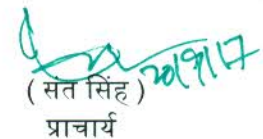 20/9/17
( संत सिंह )
प्राचार्य